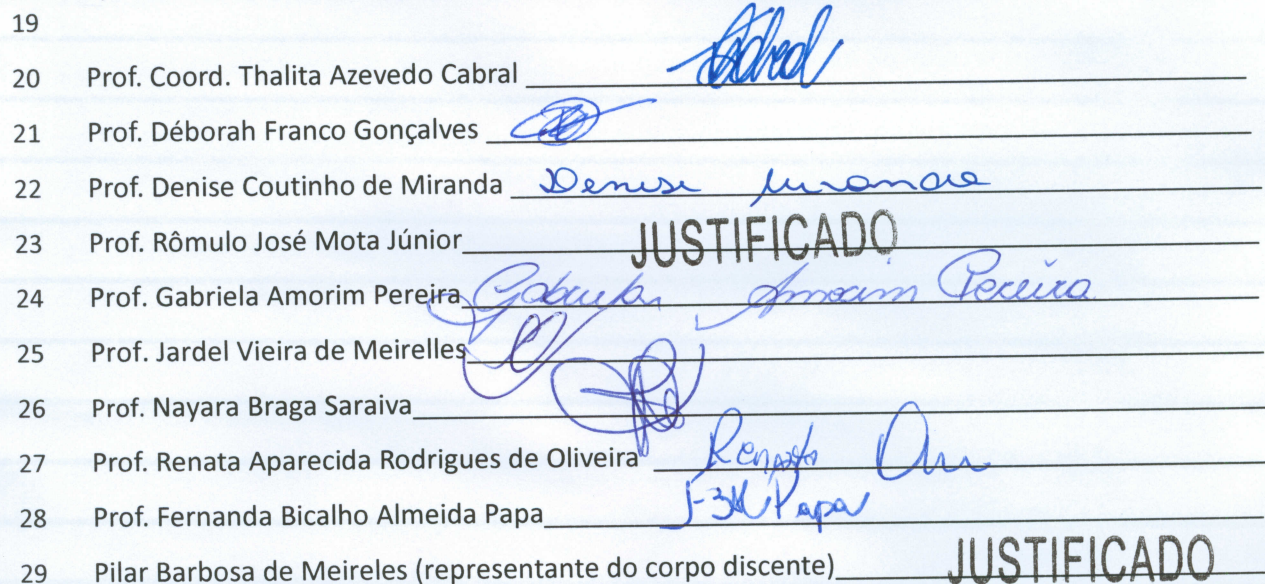 19
20 Prof. Coord. Thalita Azevedo Cabral
21 Prof. Déborah Franco Gonçalves
22 Prof. Denise Coutinho de Miranda Denise Miranda
23 Prof. Rômulo José Mota Júnior JUSTIFICADO
24 Prof. Gabriela Amorim Pereira Gabriela Amorim Pereira
25 Prof. Jardel Vieira de Meirelles
26 Prof. Nayara Braga Saraiva
27 Prof. Renata Aparecida Rodrigues de Oliveira Renata
28 Prof. Fernanda Bicalho Almeida Papa Papa
29 Pilar Barbosa de Meireles (representante do corpo discente) JUSTIFICADO